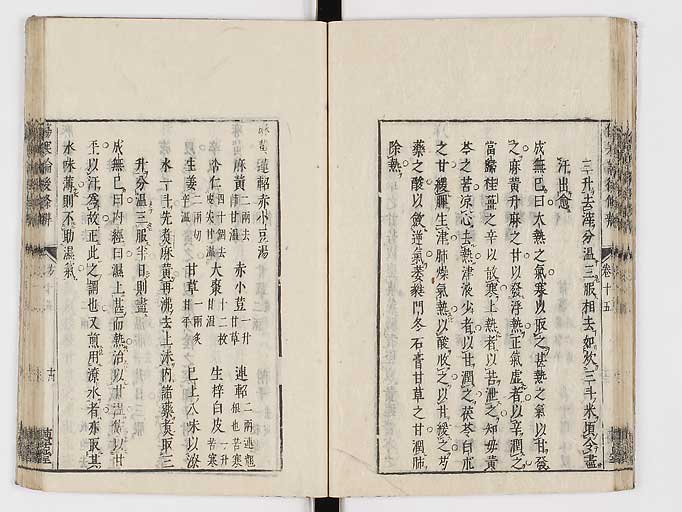 三升去滓分溫三服相去如炊三斗米頃令盡
汗出愈
成無已曰大熱之氣寒以取之甚熱之氣以甘發
之麻黃升麻之甘以發浮熱正氣虛者以辛潤之
當歸桂薑之辛以散寒上熱者以苦泄之知母黃
芩之苦涼心去熱津液少者以甘潤之茯苓白朮
之甘緩脾生津肺燥氣熱以酸收之以甘緩之芍
藥之酸以斂逆氣葳蕤門冬石膏甘草之甘潤肺
除熱
卷十五
連軺赤小豆湯
麻黃二兩去節甘溫 赤小荳一升甘草 連軺二兩連翹根也苦寒
杏仁四十個去皮尖甘溫 大棗十二枚甘溫 生梓白皮一升苦寒
生姜二兩切 甘草一兩炙甘平 已上八味以潦
水一斗先煮麻黃再沸去上沫內諸藥煮取三
升分溫三服半日則盡
成無已曰內經曰濕上甚而熱治以甘溫佐以甘
平以汗為故正此之謂也又煎用潦水者亦取其
水味薄則不助濕氣
傷寒論後條辨